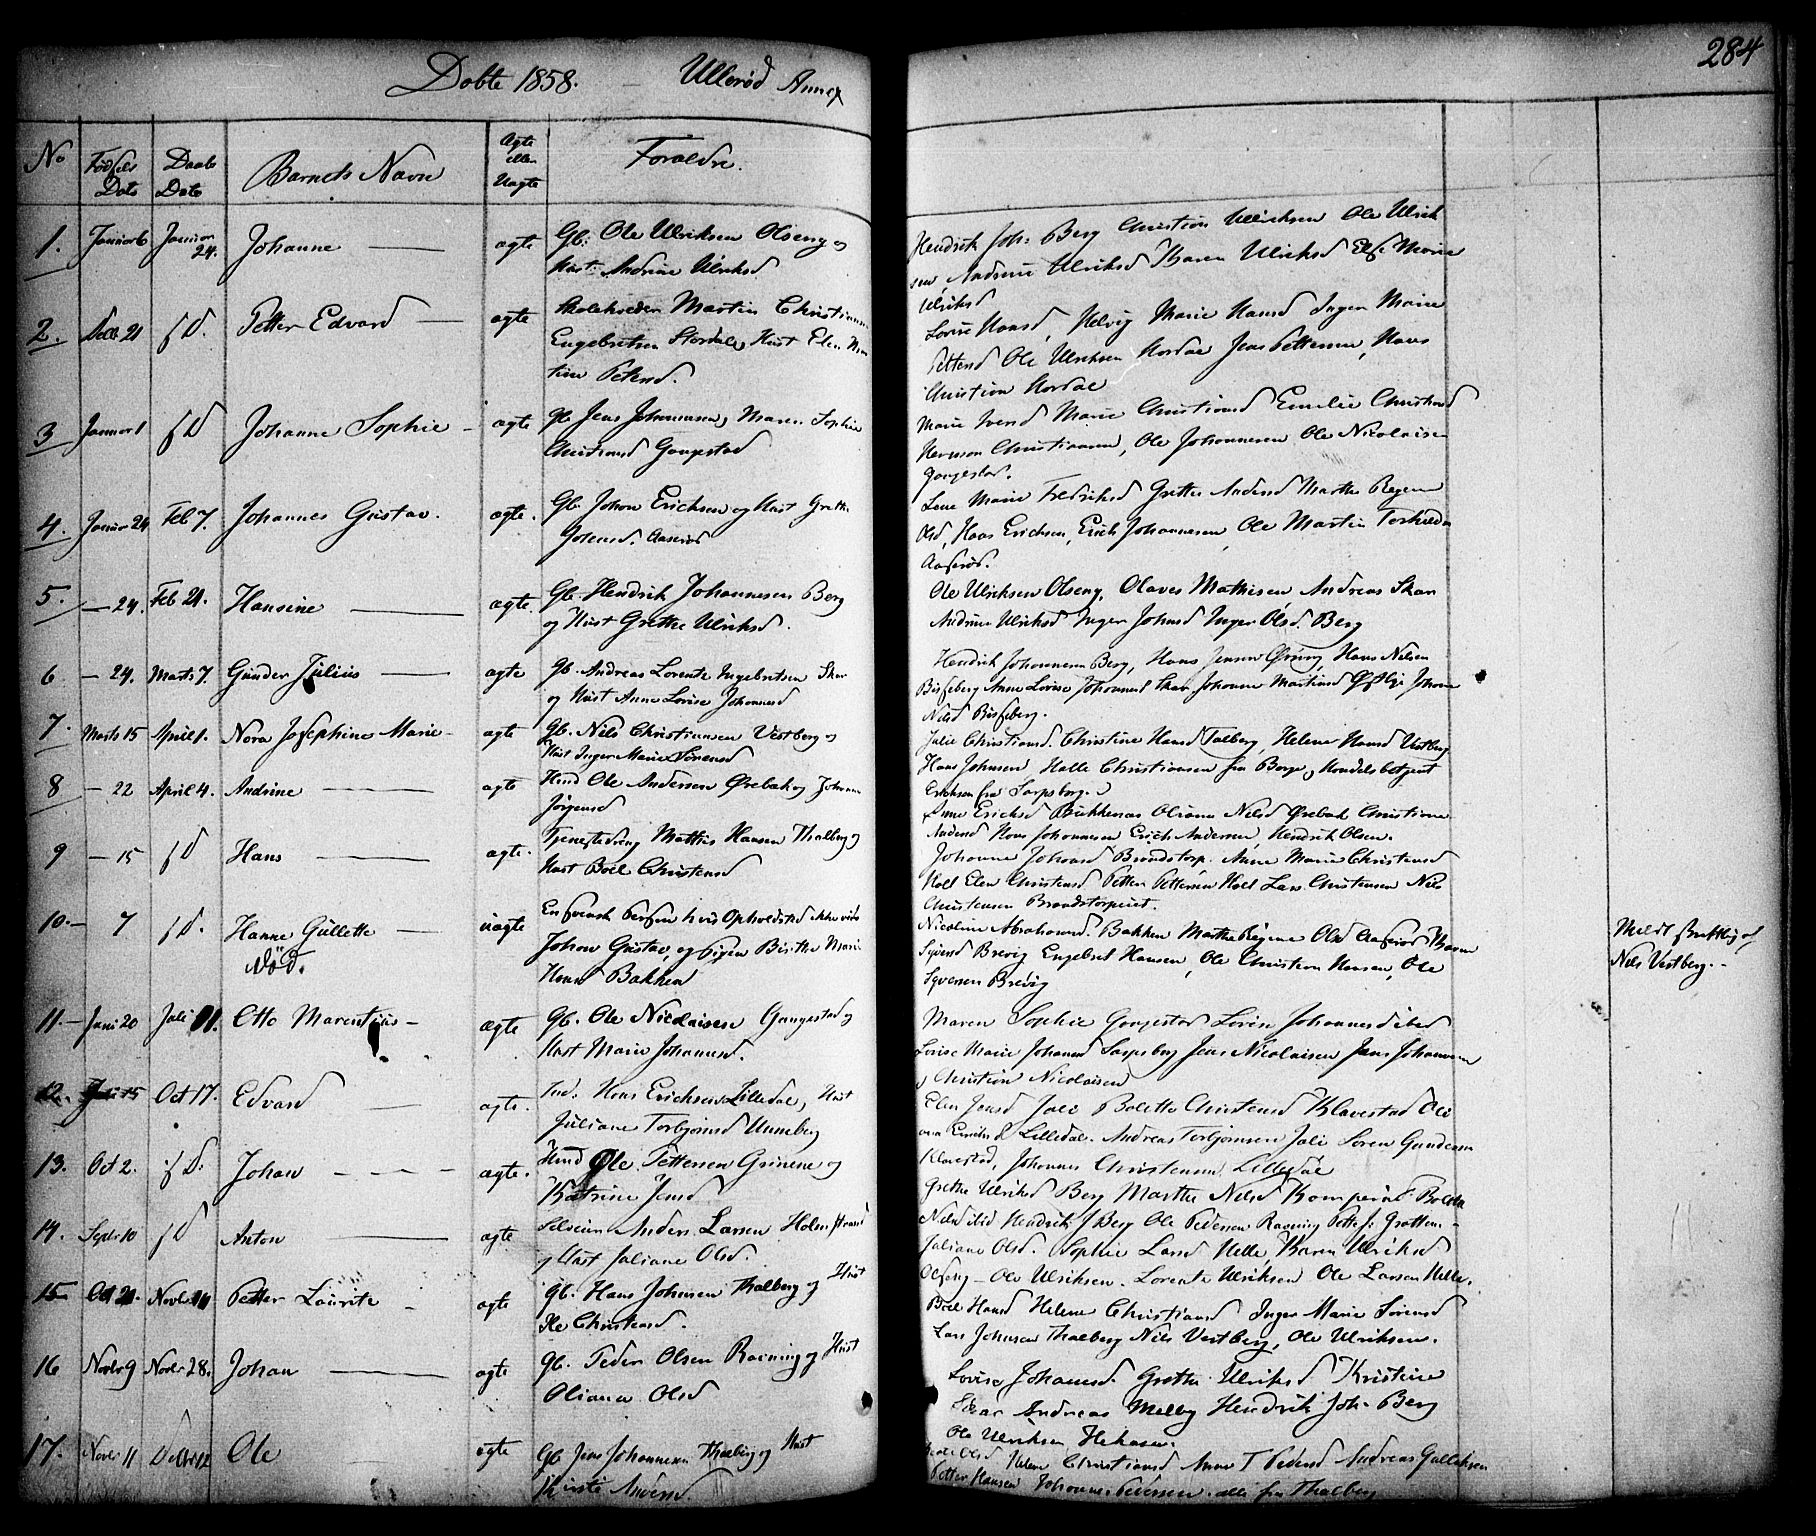 284
Døbte 1858. — Ullerød Annex
No Fødsels Dato Daabs Dato Barnets Navn Ægte eller Uægte Forældre.
1. Januar 6 Januar 24. Johanne — ægte Gb: Ole Ulriksen Olseng og
Hust: Andrine Ulriksd
Hendrik Joh: Berg Christian Ullriksen Ole Ulrik
sen, Andrine Ulriksd Karen Ulriksd Else Marie
Ulriksd
2. Decbr 21 s D. Petter Edvard — ægte Skoleholder Martin Christian
Engebretsen Stordal, Hust Elen
Petersd.
Lovise Hansd, Helvig Marie Hansd Inger Marie
Pettersd Ole Ulriksen Hordae Jens Pettersen, Hans
Christian Hordae
3 Januar 1 s D Johanne Sophie - ægte Gb Jens Johannesen, Maren Sophie
Christiansd Gangestad
Marie Iversd Marie Christiansd Emilie Christiansd
Herman Christiansen, Ole Johannesen Ole Nicolaisen
Gangestad.
4. Januar 24 Feb 7. Johannes Gustav. ægte. Gb. Johan Erichsen og Hust Grethe
Aaserød
Lene Marie Fredriksd Grethe Andersd Marthe Regine
Olsd, Hans Erichsen, Erich Johannesen, Ole Martin
Aaserød.
5. — 24. Feb 21. Hansine — ægte. Gb. Hendrik Johannesen Berg
og Hust Grethe Ulriksd.
Ole Ulriksen Olseng, Olaves Mathisen Andreas Skar
Andrine Ulriksd Inger Johnsd Inger Olsd. Berg
6 — 24. Marts 7. Gunder Julius — ægte Gb. Andreas Lorents Ingebretsen Skar
og Hust Anne Lovise Johannesd
Hendrik Johannesen Berg, Hans Jensen Hans Nilsen
Bisseberg Anne Lovise Johannesd Skar Johanne Martinsd
Nilsd Bisseberg.
7. Marts 15 April 1. Nora Josephine Marie - ægte Gb. Nils Christiansen Vestberg og
Hust Inger Marie Sørensd
Julie Christiansd. Christine Hansd Talberg, Helene Hansd Vestberg
Hans Johnsen Halle Christiansen fra Borge, Handelsbetjent
Erichsen fra Sarpsborg.
8 — 22 April 4. Andrine — ægte Husmd Ole Andersen Ørebak og Johanne
Jörgensd
Anne Ericksd Bukkenas Oliana Nilsd Ørebak Christiane
Andersd Hans Johannesen Erich Andersen, Hendrik Olsen.
9 — 15 s D Hans — ægte. Tjenestedreng Mathis Hansen Thalberg og
Hust Boel Christensd
Johanne Johansd Brandstorp. Anne Marie Christensd
Holt Elen Christensd Petter Pettersen Holt Lars Christensen Nils
Christensen
10. — 7 s D. Hanne Gullette — uægte En svensk Person hvis Opholdsted ikke vides
Död.
Johan Gustav, og pigen Birthe Marie
Hansd Bakken
Nicoline Abrahamsd. Bakken Marthe Regine Olsd Aaserød Karen
Syversd Brevig Engebret Hansen, Ole Christian Hansen, Ole
Syversen Brevig
Meldt af
Nils Vestberg.
11. — Juni 20 Juli 11. Otto Marentius - ægte Gb. Ole Nicolaisen Gangestad og
Hust Marie Johannesd.
Maren Sophie Gangestad Lovise Johannesd ibid
Lovise Marie Johannesd Sarpsborg Jens Nicolaisen Jens Johannesen
og Christian Nicolaisen
12. Juli 15 Oct 17. Edvard — ægte. Ind. Hans Erichsen Lilledal, Hust
Juliane Torbjørnsd Unneberg
Elen Jensd Jale Bolette Christensd Klavestad Oli
Lilledal. Andreas Torbjørnsen Jale Soren Gundersen
Klavestad, Johannes Christensen Lilledal
13. Oct 2. s D. Johan - - - - ægte. Husmd Ole Pettersen Grinene og
Katrine Jensd
Grethe Ulriksd Berg Marthe Nilsd Bolette
Nilsd ibid Hendrik J Berg Ole Pedersen Ravning
14. Septr 10 s D Anton — ægte Anders Larsen Holm
og Hust Juliane Olsd
Juliane Olsd. Sophie Larsd Helle, Karen Ulriksd
Olseng — Ole Ulriksen. Lorents Ulriksen Ole Larsen Helle.
15 Oct 21. Novbr Petter Laurits - ægte Gb. Hans Johnsen Thalberg og Hust
Christensd.
Boel Hansd Helene Christiansd Inger Marie Sørensd
Lars Johnsen Thalberg Nils Vestberg, Ole Ulriksen.
16 Novbr 9 Novbr 28. Johan — ægte Gb. Peder Olsen Ravning og Hust
Oliana Olsd
Lovise Johannesd. Grethe Ulriksd Kristine
Skar Andreas Melby Hendrik Joh. Berg
Ole Ulriksen
17. Novbr 11 Decbr 12 Ole ægte Gb Jens Johannesen Thalberg og Hust
Kirsti Andersd.
Olsd Helene Christiansd Anne T Pedersd Andreas Gulliksen
Petter Hansen Johannes Pedersen. alle fra Thalberg